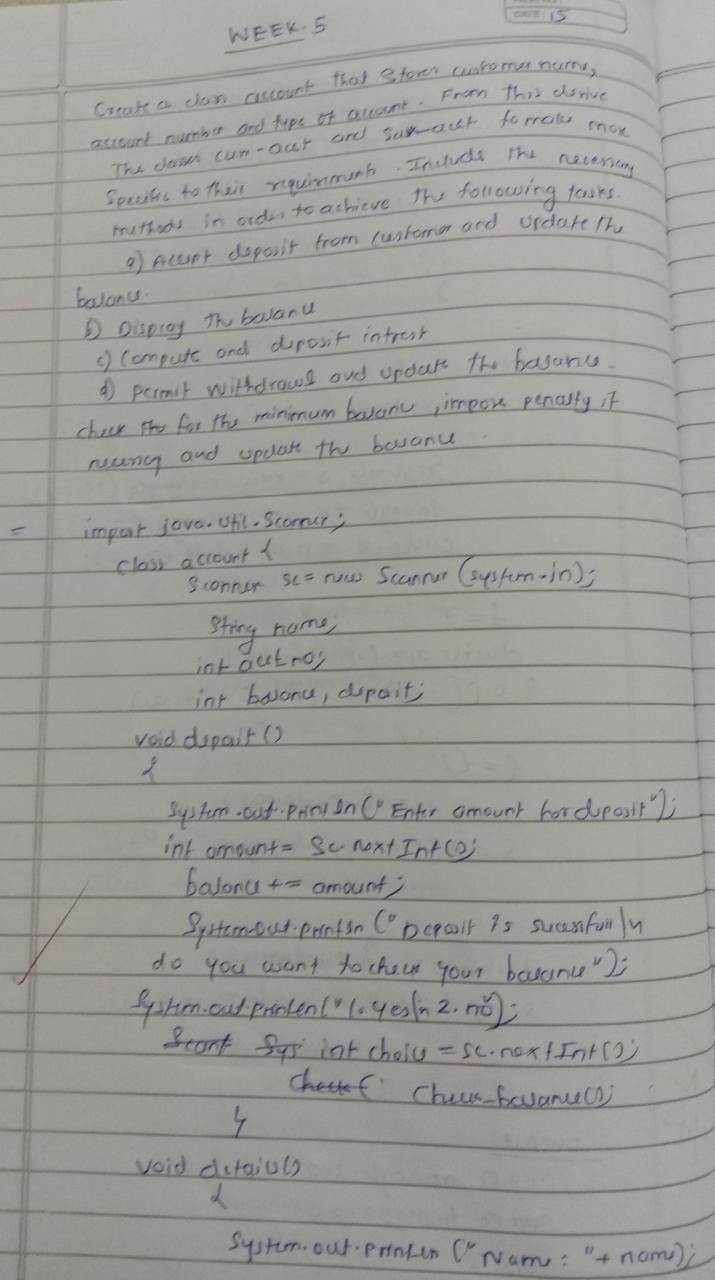 DATE: 15
WEEK-5
Create a class account that stores customer name,
account number and type of account. From this derive
The classes curr-acct and sav-acct to make more
Specific to their requirements. Include the necessary
methods in order to achieve the following tasks.
a) Accept deposit from customer and update the
balance.
b) Display the balance
c) Compute and deposit intrest
d) Permit withdrawl and update the balance.
check the for the minimum balance, impose penalty if
necessary and update the balance.
= import java.util.Scanner;
class account {
Scanner sc = new Scanner (system.in);
String name;
int acct no;
int balance, deposit;
void deposit ()
{
System.out.println ("Enter amount for deposit");
int amount = sc.nextInt();
balance += amount;
System.out.println (" Deposit is sucessfull \n
do you want to check your balance");
System.out.println (" 1. yes \n 2. no");
int choice = sc.nextInt();
Check_balance();
}
void details()
{
System.out.println (" Name : " + name);